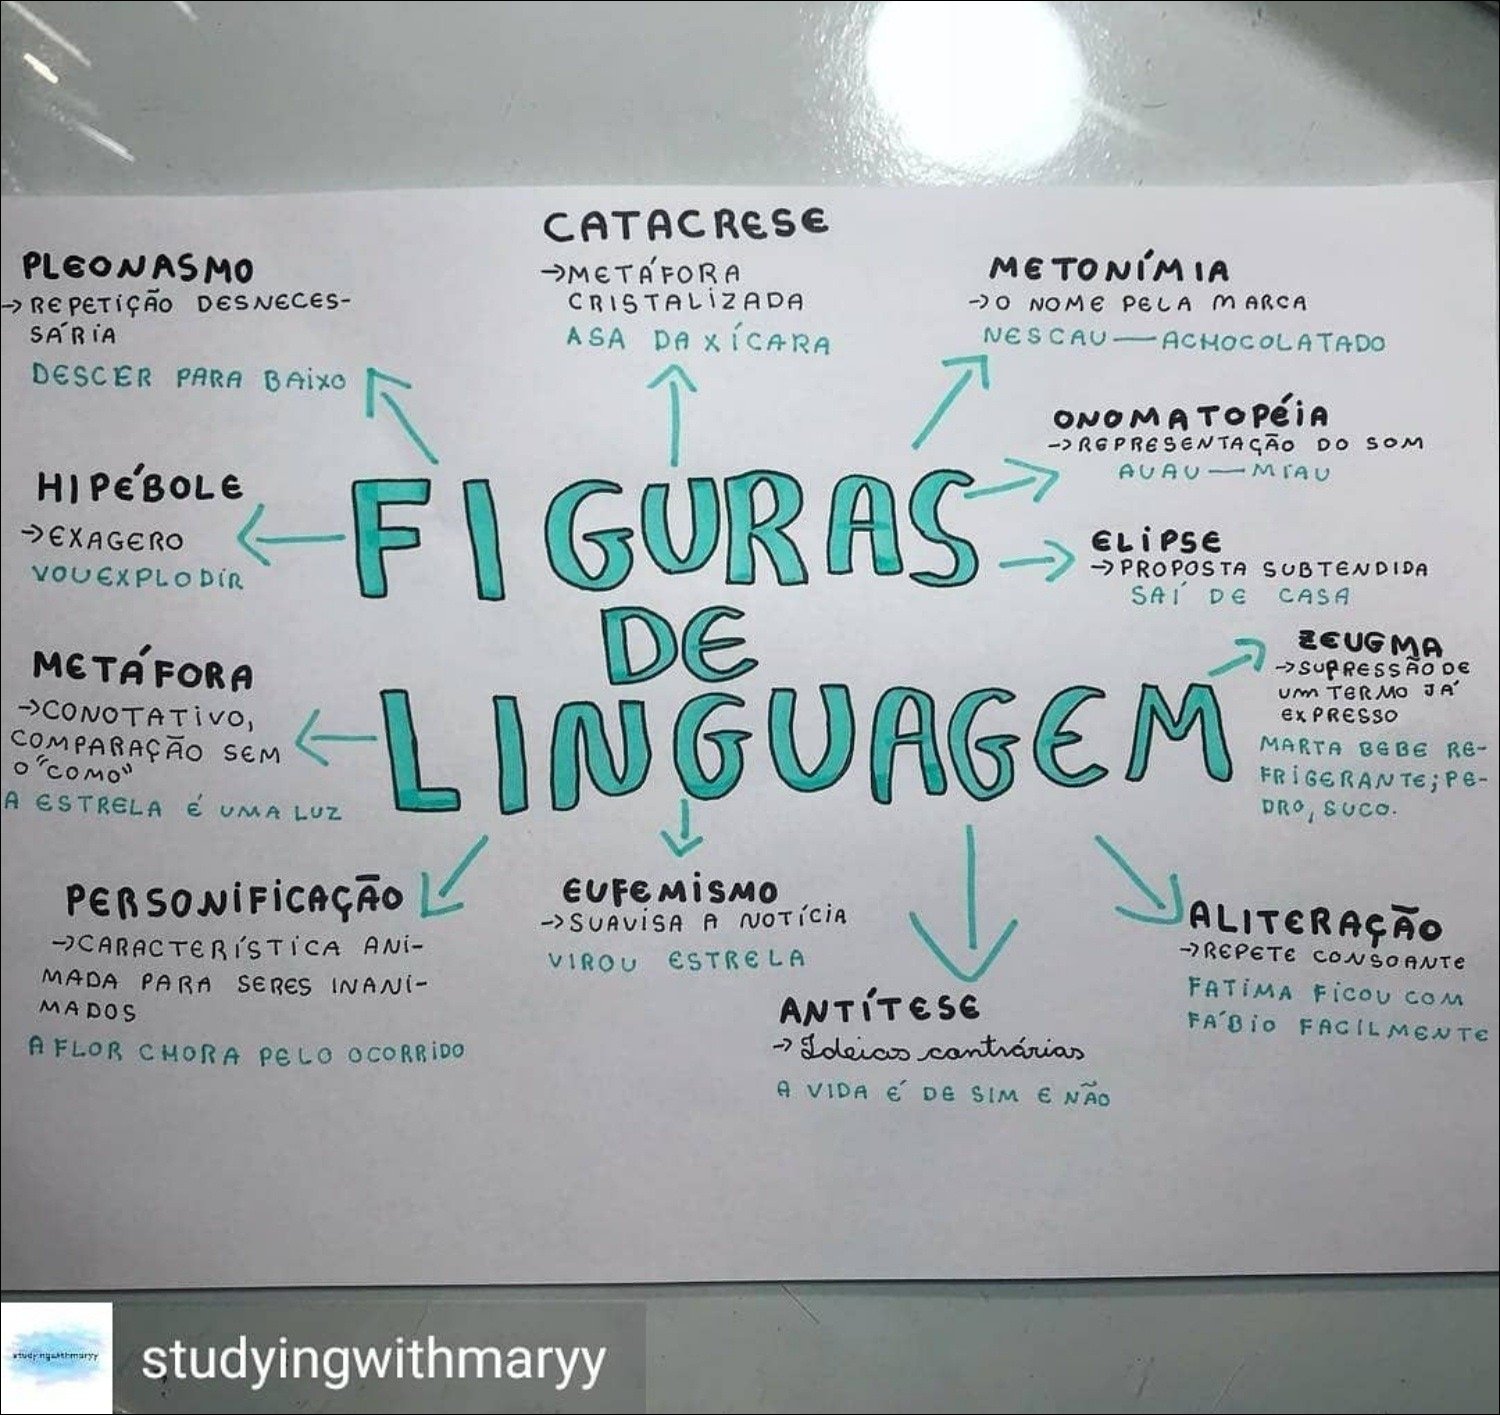 CATACRESE
→METÁFORA
CRISTALIZADA
ASA DA XÍCARA
PLEONASMO
→REPETIÇÃO DESNECES-
SÁRIA
DESCER PARA BAIXO
METONÍMIA
→O NOME PELA MARCA
NESCAU—ACHOCOLATADO
ONOMATOPÉIA
→REPRESENTAÇÃO DO SOM
AUAU—MIAU
HIPÉBOLE
→EXAGERO
VOU EXPLODIR
FIGURAS
DE
LINGUAGEM
ELIPSE
→PROPOSTA SUBTENDIDA
SAÍ DE CASA
ZEUGMA
→SUPRESSÃO DE
UM TERMO JÁ
EXPRESSO
MARTA BEBE RE-
FRIGERANTE; PE-
DRO, SUCO.
METÁFORA
→CONOTATIVO,
COMPARAÇÃO SEM
O "COMO"
A ESTRELA É UMA LUZ
PERSONIFICAÇÃO
→CARACTERÍSTICA ANI-
MADA PARA SERES INANI-
MADOS
A FLOR CHORA PELO OCORRIDO
EUFEMISMO
→SUAVISA A NOTÍCIA
VIROU ESTRELA
ANTÍTESE
→Ideias contrárias
A VIDA É DE SIM E NÃO
ALITERAÇÃO
→REPETE CONSOANTE
FATIMA FICOU COM
FÁBIO FACILMENTE
studyingwithmaryy
studyingwithmaryy